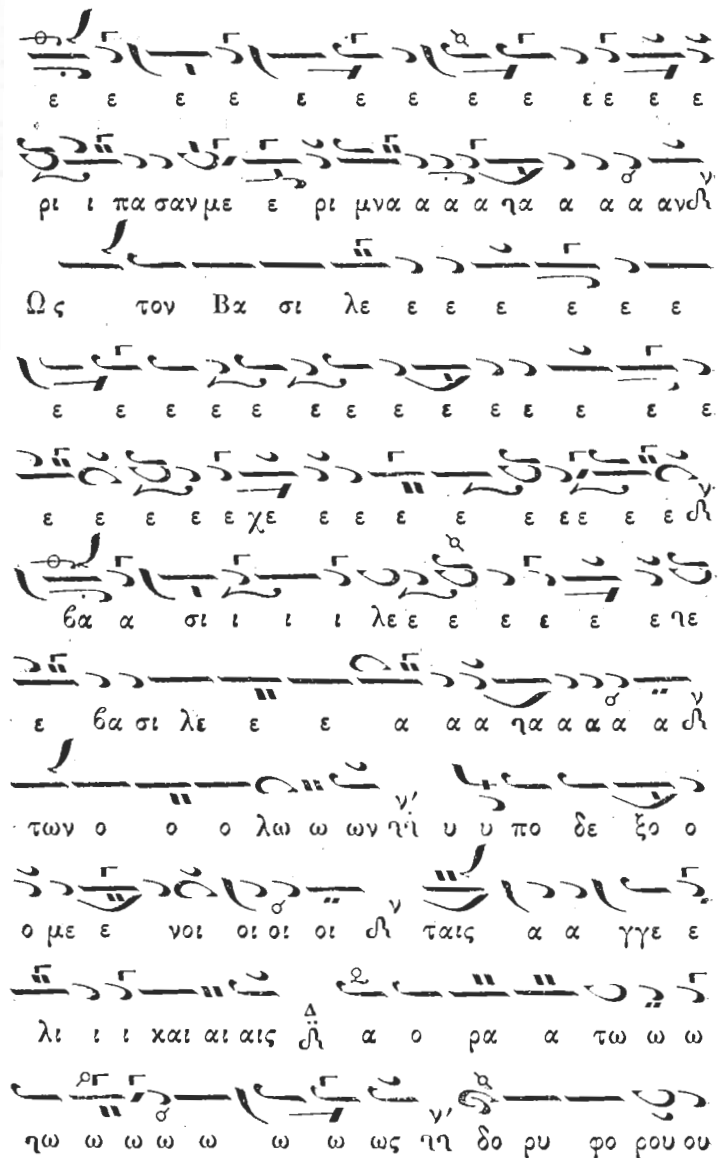 ε ε ε ε ε ε ε ε ε ε ε ε ε
ρι ι πα σαν με ε ρι μνα α α α ηα α α α αν ν
Ως τον Βα σι λε ε ε ε ε ε ε
ε ε ε ε ε ε ε ε ε ε ε ε ε ε
ε ε ε ε ε χε ε ε ε ε ε ε ε ε ε ν
βα α σι ι ι ι λε ε ε ε ε ε ε ηε
ε βα σι λε ε ε α α α ηα α α α α ν
των ο ο ο λω ω ων ν' υ υ πο δε ξο ο
ο με ε νοι οι οι οι ν ταις α α γγε ε
λι ι ι και αι αι αις Δ α ο ρα α τω ω ω
ηω ω ω ω ω ω ω ως ν' δο ρυ φο ρου ου